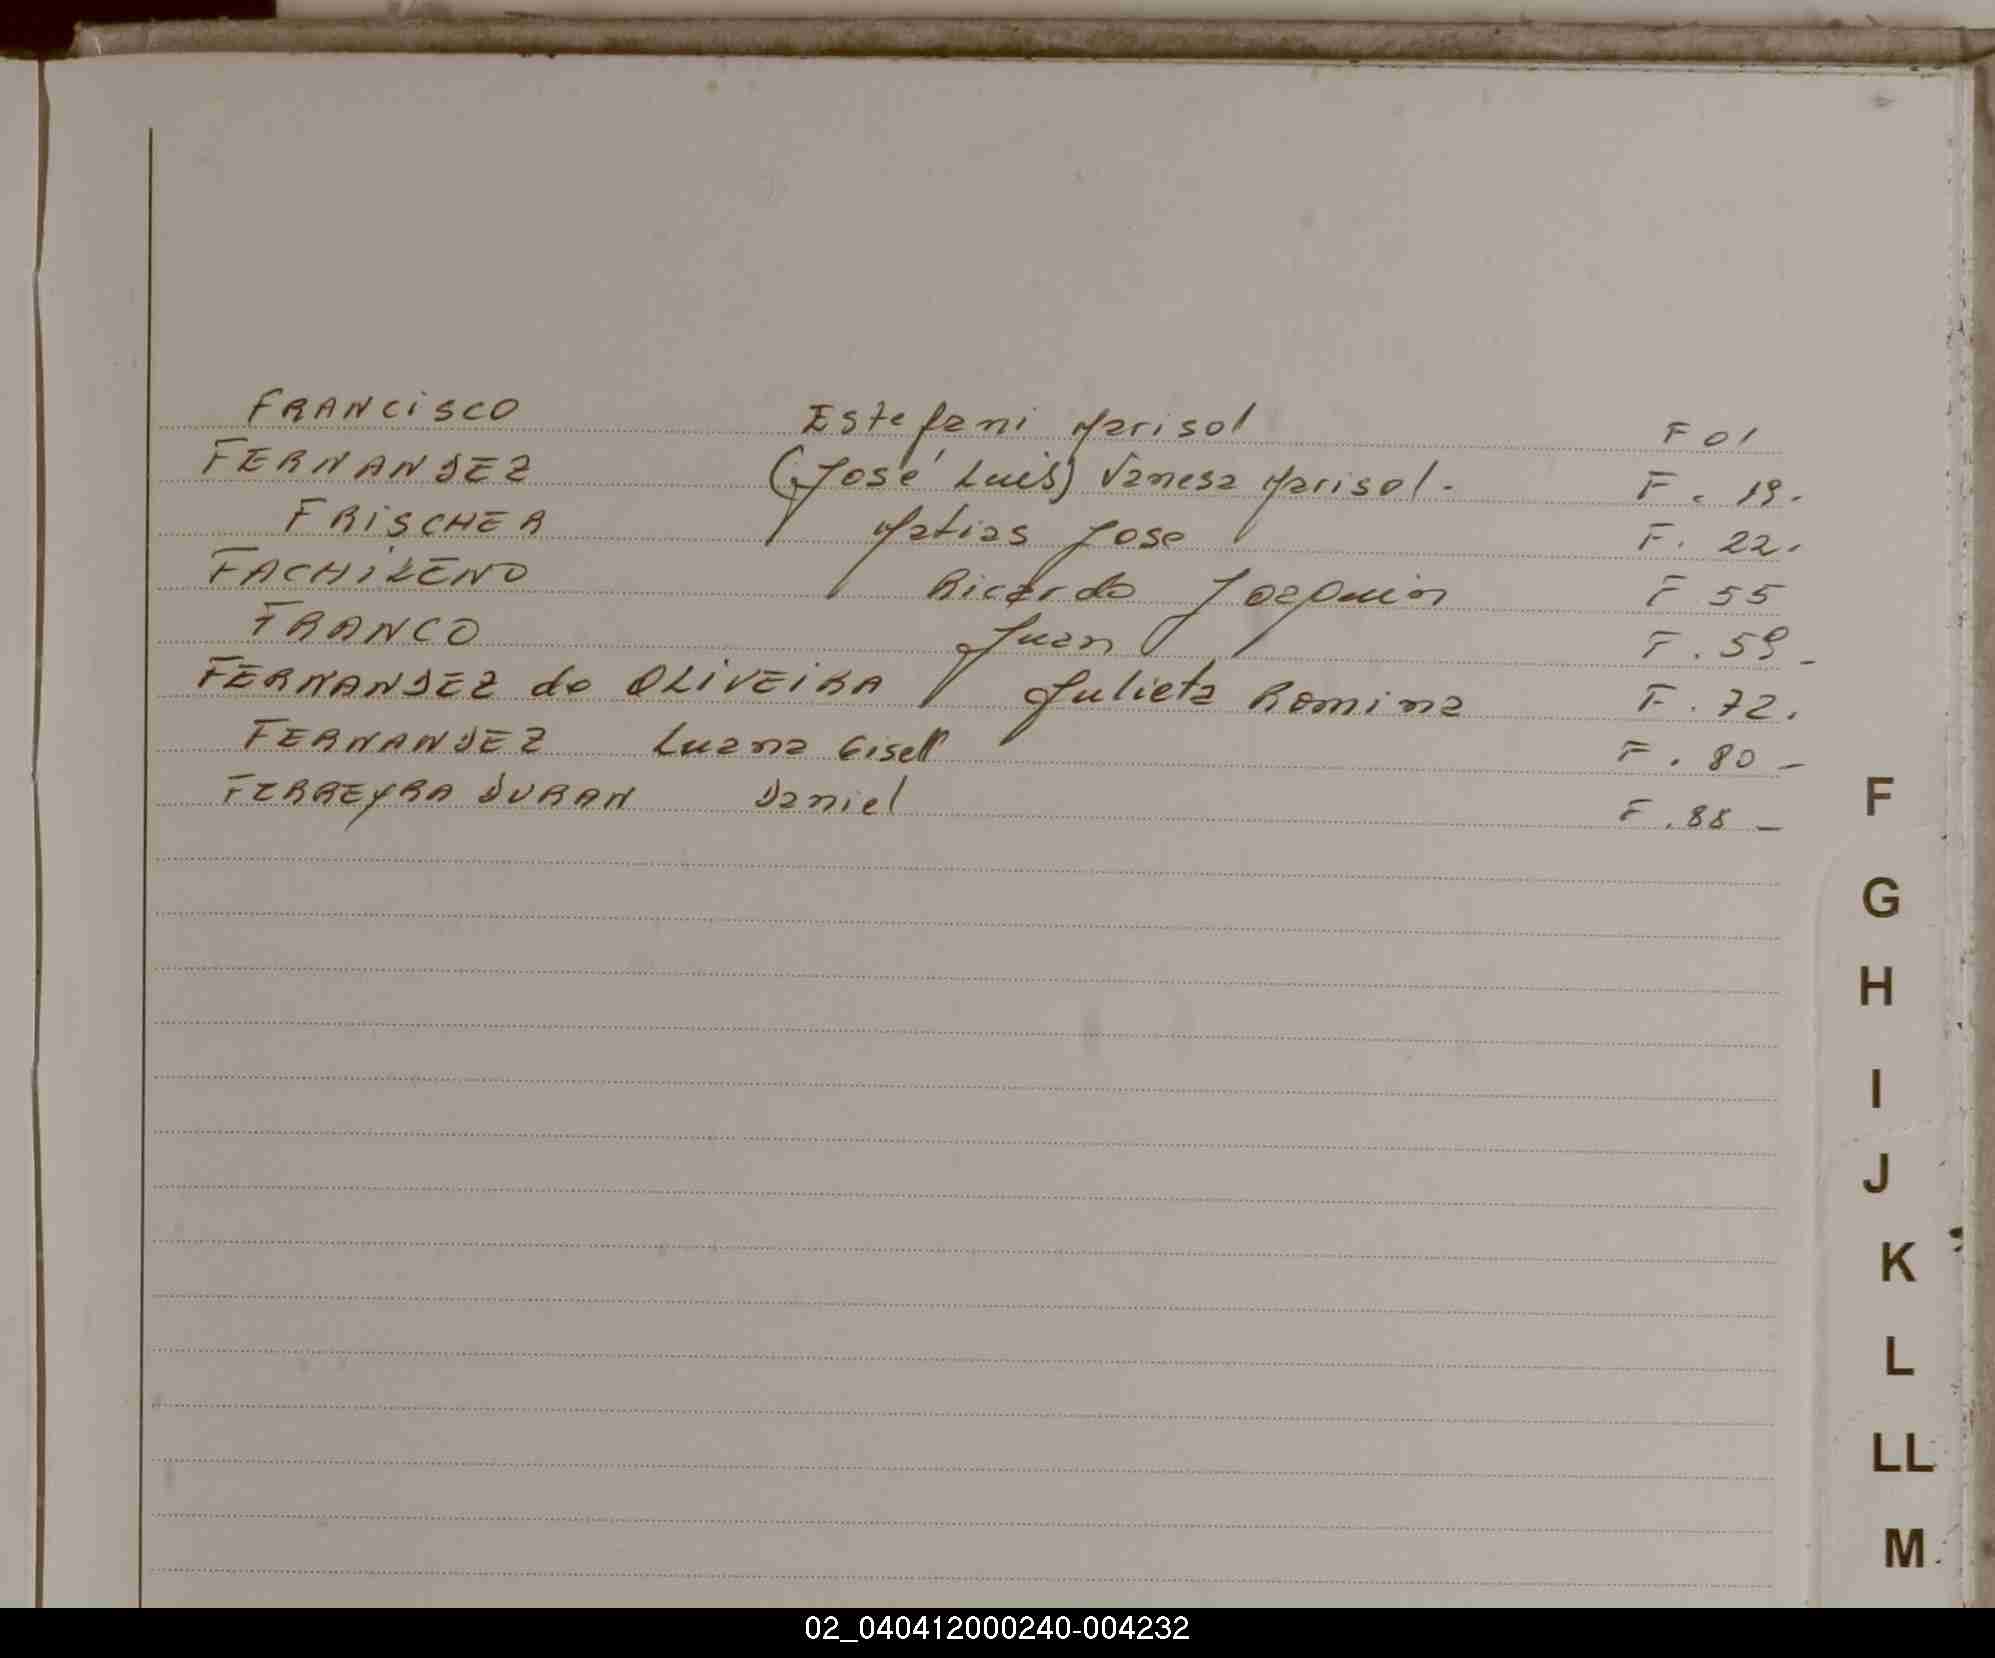 FRANCISCO Estefani Marisol F 01
FERNANDEZ (José Luis) Vanesa Marisol. F. 19.
FRISCHER Matias Jose F. 22.
FACHILENO Ricardo Joaquin F 55
FRANCO Juan F. 59-
FERNANDEZ de OLIVEIRA Julieta Romina F. 72.
FERNANDEZ Luana Gisell F. 80-
FERREYRA DURAN Daniel F. 88-
F
G
H
I
J
K
L
LL
M
02_040412000240-004232